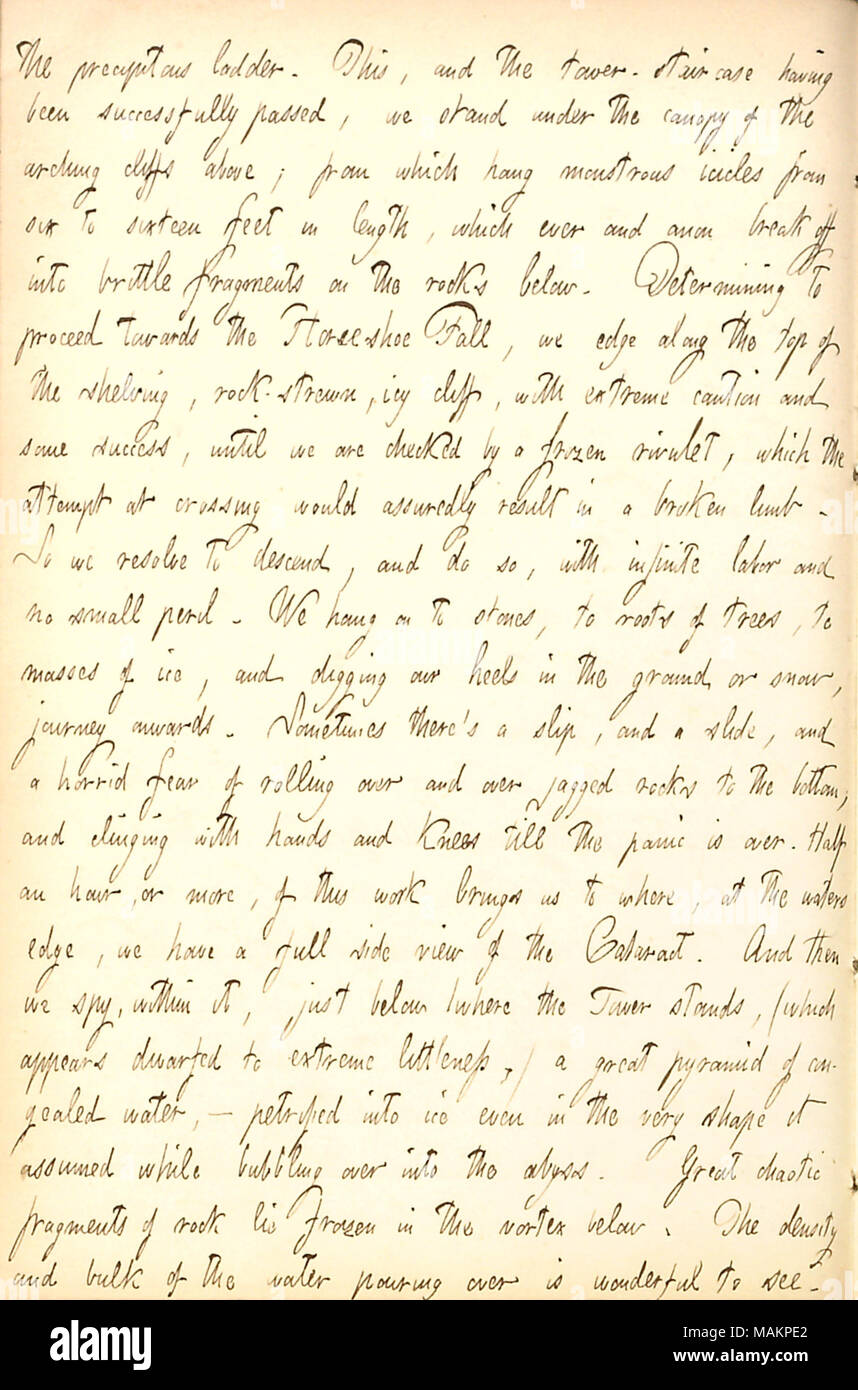 the precipitous ladder. This, and the tower-staircase having
been successfully passed, we stand under the canopy of the
arching cliffs above; from which hang monstrous icicles from
six to sixteen feet in length, which ever and anon break off
into brittle fragments on the rocks below. Determining to
proceed towards the Horseshoe Fall, we edge along the top of
the shelving, rock-strewn, icy cliff, with extreme caution and
some success, until we are checked by a frozen rivulet, which the
attempt at crossing would assuredly result in a broken limb.
So we resolve to descend, and do so, with infinite labor and
no small peril. We hang on to stones, to roots of trees, to
masses of ice, and digging our heels in the ground or snow,
journey onwards. Sometimes there's a slip, and a slide, and
a horrid fear of rolling over and over jagged rocks to the bottom;
and clinging with hands and knees till the panic is over. Half
an hour, or more, of this work brings us to where, at the waters
edge, we have a full side view of the Cataract. And then
we spy, within it, just below where the Tower stands, (which
appears dwarfed to extreme littleness,) a great pyramid of con-
gealed water, — petrified into ice even in the very shape it
assumed while bubbling over into the abyss. Great chaotic
fragments of rock lie frozen in the vortex below. The density
and bulk of the water pouring over is wonderful to see.
alamy
Image ID: MAKPE2
www.alamy.com